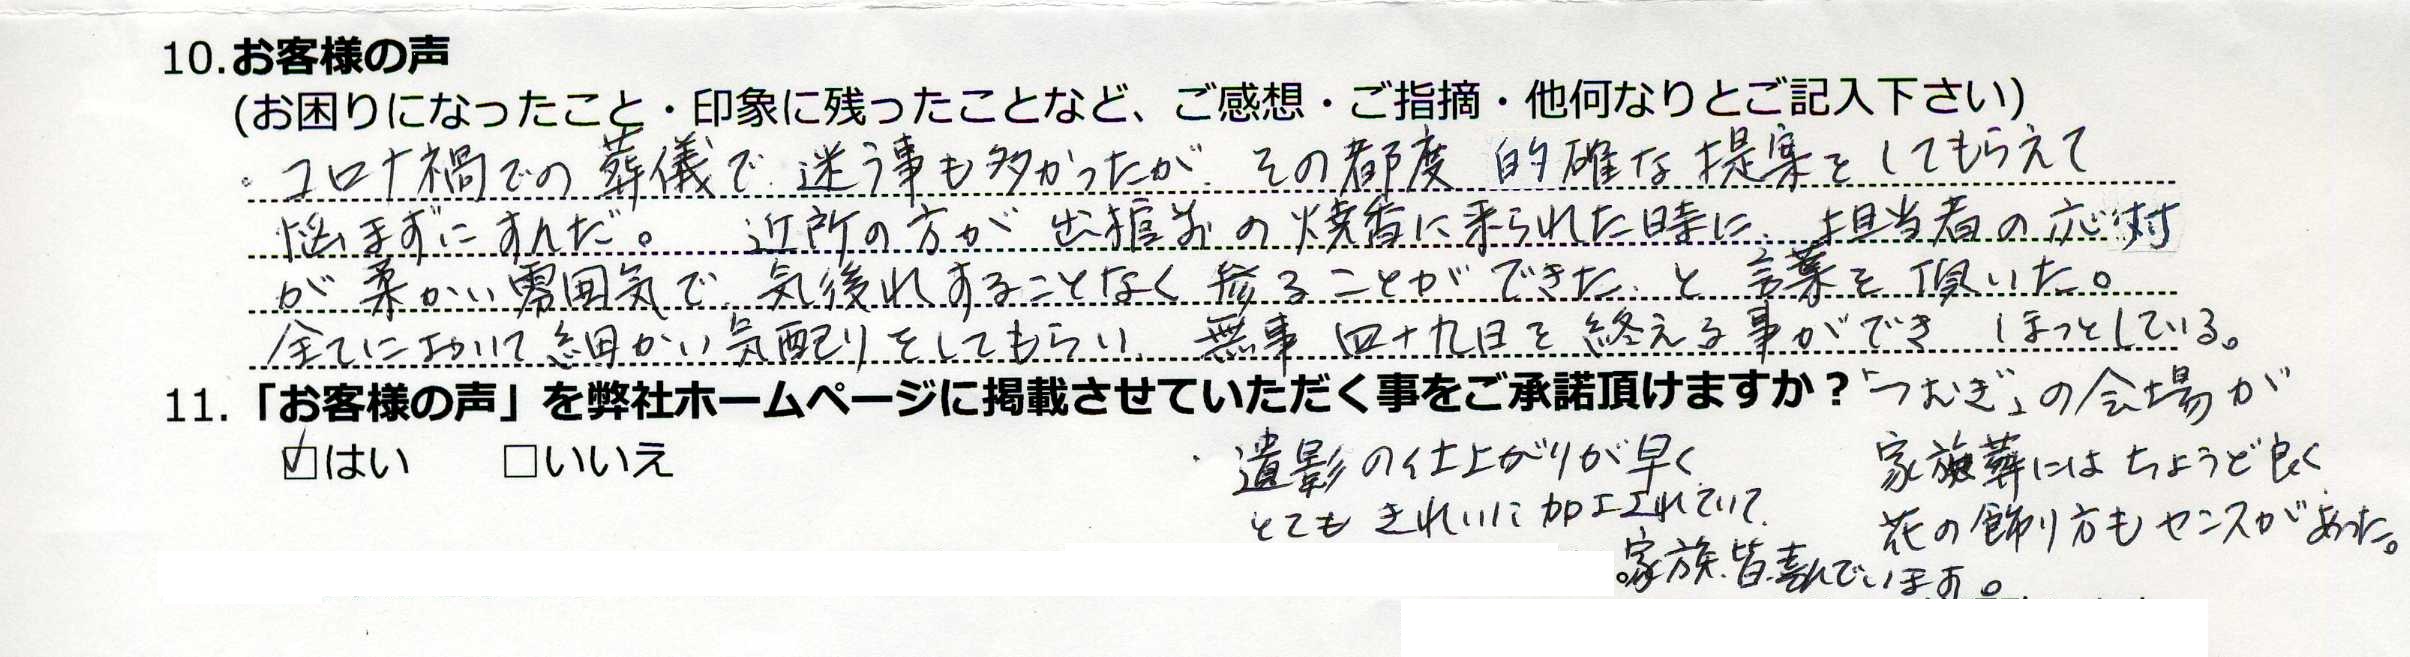 10.お客様の声
(お困りになったこと・印象に残ったことなど、ご感想・ご指摘・他何なりとご記入下さい)
・コロナ禍での葬儀で、迷う事も多かったが、その都度 的確な提案をしてもらえて
悩まずにすんだ。 近所の方が 出棺前の焼香に来られた時に、担当者の応対
が柔かい雰囲気で、気後れすることなく 参ることができた、と 言葉を頂いた。
全てにおいて 細かい気配りをしてもらい、無事 四十九日を終える事ができ ほっとしている。
11.「お客様の声」を弊社ホームページに掲載させていただく事をご承諾頂けますか？
☑はい □いいえ
・遺影の仕上がりが早く、
とても きれいに加工されていて、
家族、皆、喜んでいます。
「つむぎ」の会場が
家族葬にはちょうど良く、
花の飾り方もセンスがあった。